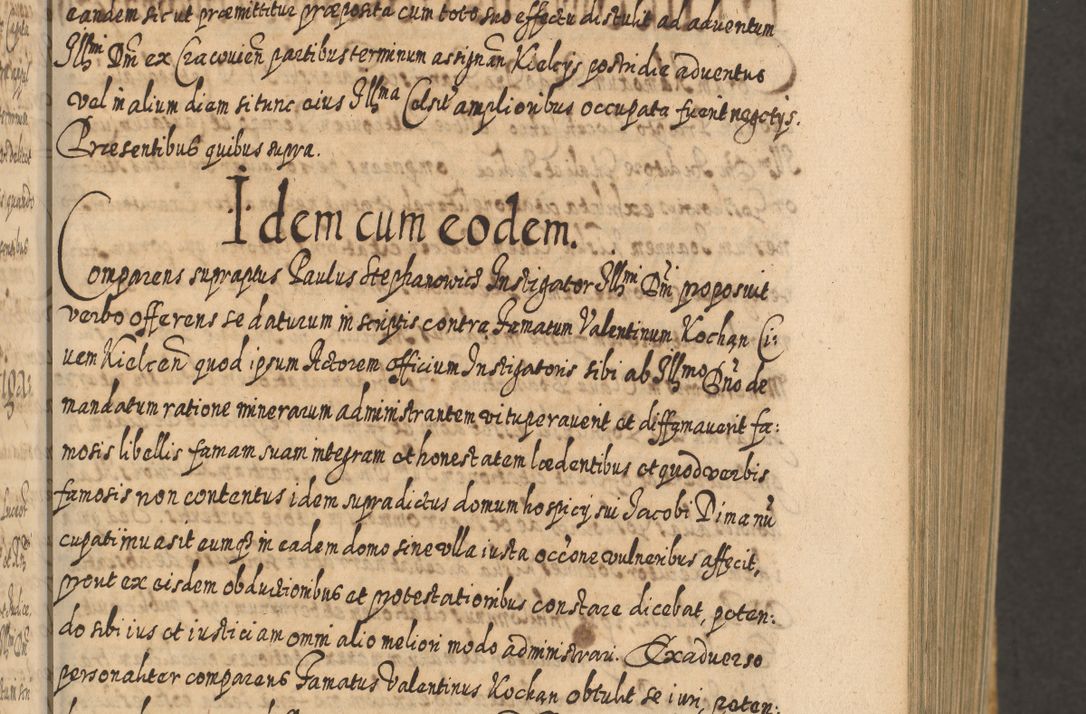 eandem sicut præmittitur præposita cum toto suo effectu distulit ad adventum
Illmi Dni ex Cracovien partibus terminum assignan Kielcys postridie adventus
vel in alium diem si tunc eius Illma Celsit amplioribus occupata fuerit negotys.
Præsentibus quibus supra.
Idem cum eodem.
Comparens supraptus Paulus Stephanowicz Instigator Illmi Dni proposuit
verbo offerens se daturum in scriptis contra Famatum Valentinum Kochan Ci:
vem Kielcen quod ipsum Actorem officium Instigatoris sibi ab Illmo Dno de
mandatum ratione minerarum administrantem vituperaverit et diffamaverit fa:
mosis libellis famam suam integram et honestatem lædentibus et quod verbis
famosis non contentus idem supradictus domum hospicy sui Jacobi Dima nu
cupati invasit eumq3 in eadem domo sine ulla iusta occone vulneribus affecit,
prout ex eisdem obductionibus et protestationibus constare dicebat, peten:
do sibi ius et iusticiam omni alio meliori modo administrari. Ex adverso
personaliter comparens Famatus Valentinus Kochan obtulit se iuri, peten: